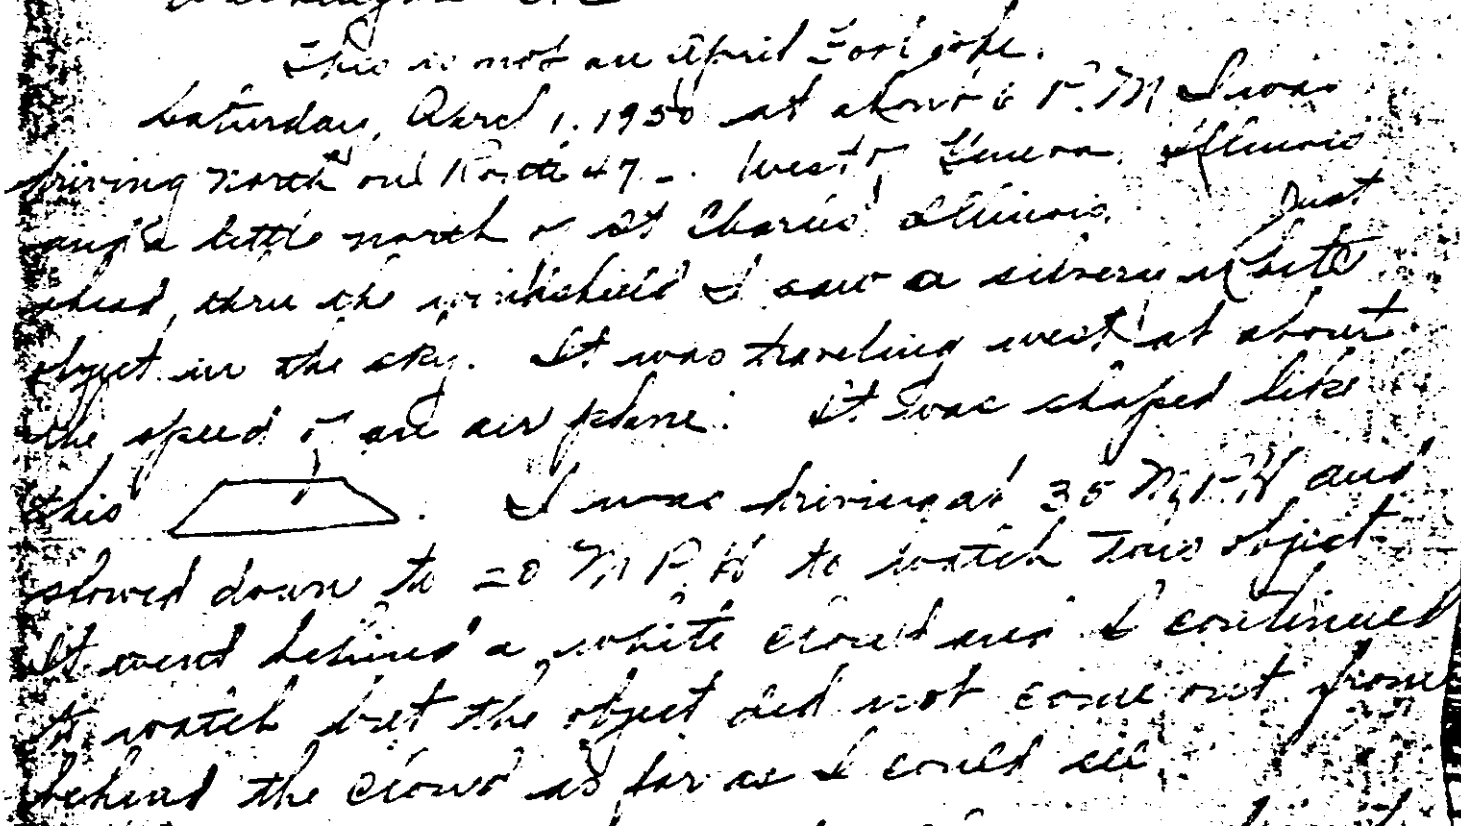 Washington DC
This is not an April Fool joke.
Saturday, April 1, 1950 at about 6 P.M I was
driving north on Route 47 -. West of Geneva, Illinois
and a little north of St Charles Illinois. Just
ahead, thru the windshield I saw a silvery white
object in the sky. It was traveling west at about
the speed of an air plane. It was shaped like
this . I was driving at 35 M.P.H and
slowed down to 20 M P. H to watch this object.
It went behind a white cloud and I continued
to watch but the object did not come out from
behind the cloud as far as I could see.